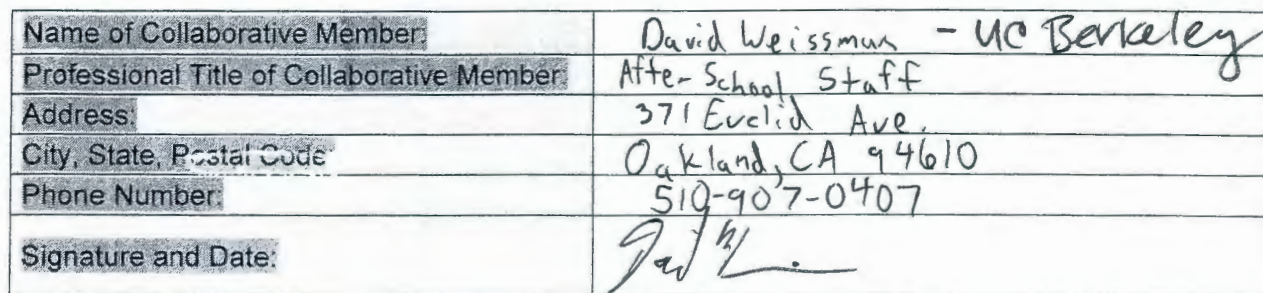 Name of Collaborative Member: David Weissman - UC Berkeley
Professional Title of Collaborative Member: After-School Staff
Address: 371 Euclid Ave.
City, State, Postal Code: Oakland, CA 94610
Phone Number: 510-907-0407
Signature and Date: